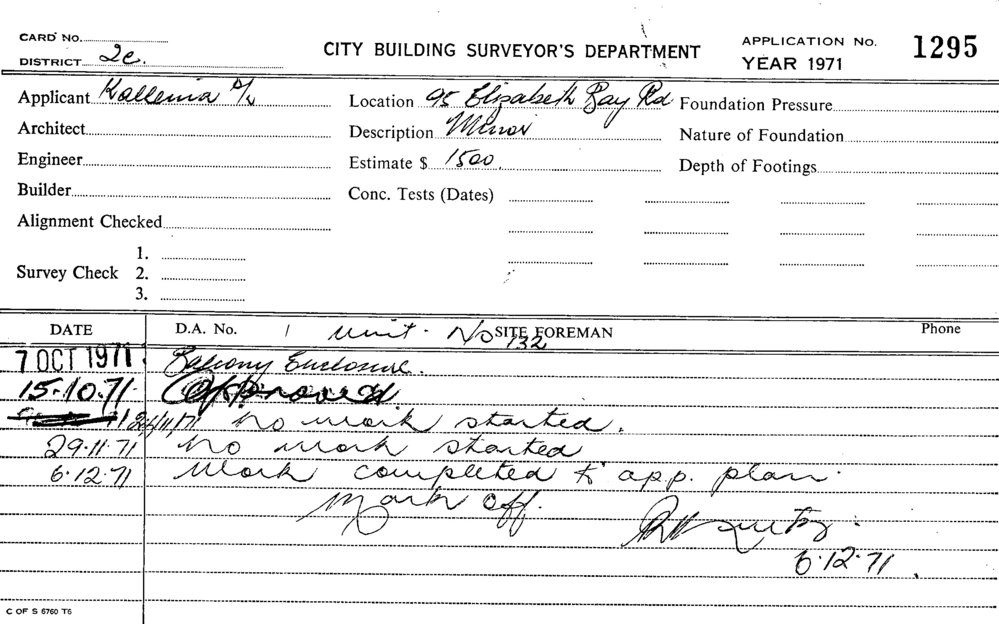 CARD NO.
DISTRICT 2c.
CITY BUILDING SURVEYOR'S DEPARTMENT
APPLICATION No. 1295
YEAR 1971
Applicant P/L
Location 95 Elizabeth Bay Rd
Foundation Pressure
Architect
Description Minor
Nature of Foundation
Engineer
Estimate $ 1500.
Depth of Footings
Builder
Conc. Tests (Dates)
Alignment Checked
Survey Check
1.
2.
3.
DATE
D.A. No. 1 unit. No 132
SITE FOREMAN
Phone
7 OCT 1971 Balcony Enclosure.
15.10.71 Approved
24/11/71 No work started.
29.11.71 No work started
6.12.71 Work completed to app. plan.
Mark off.
6.12.71.
C OF S 6760 T6